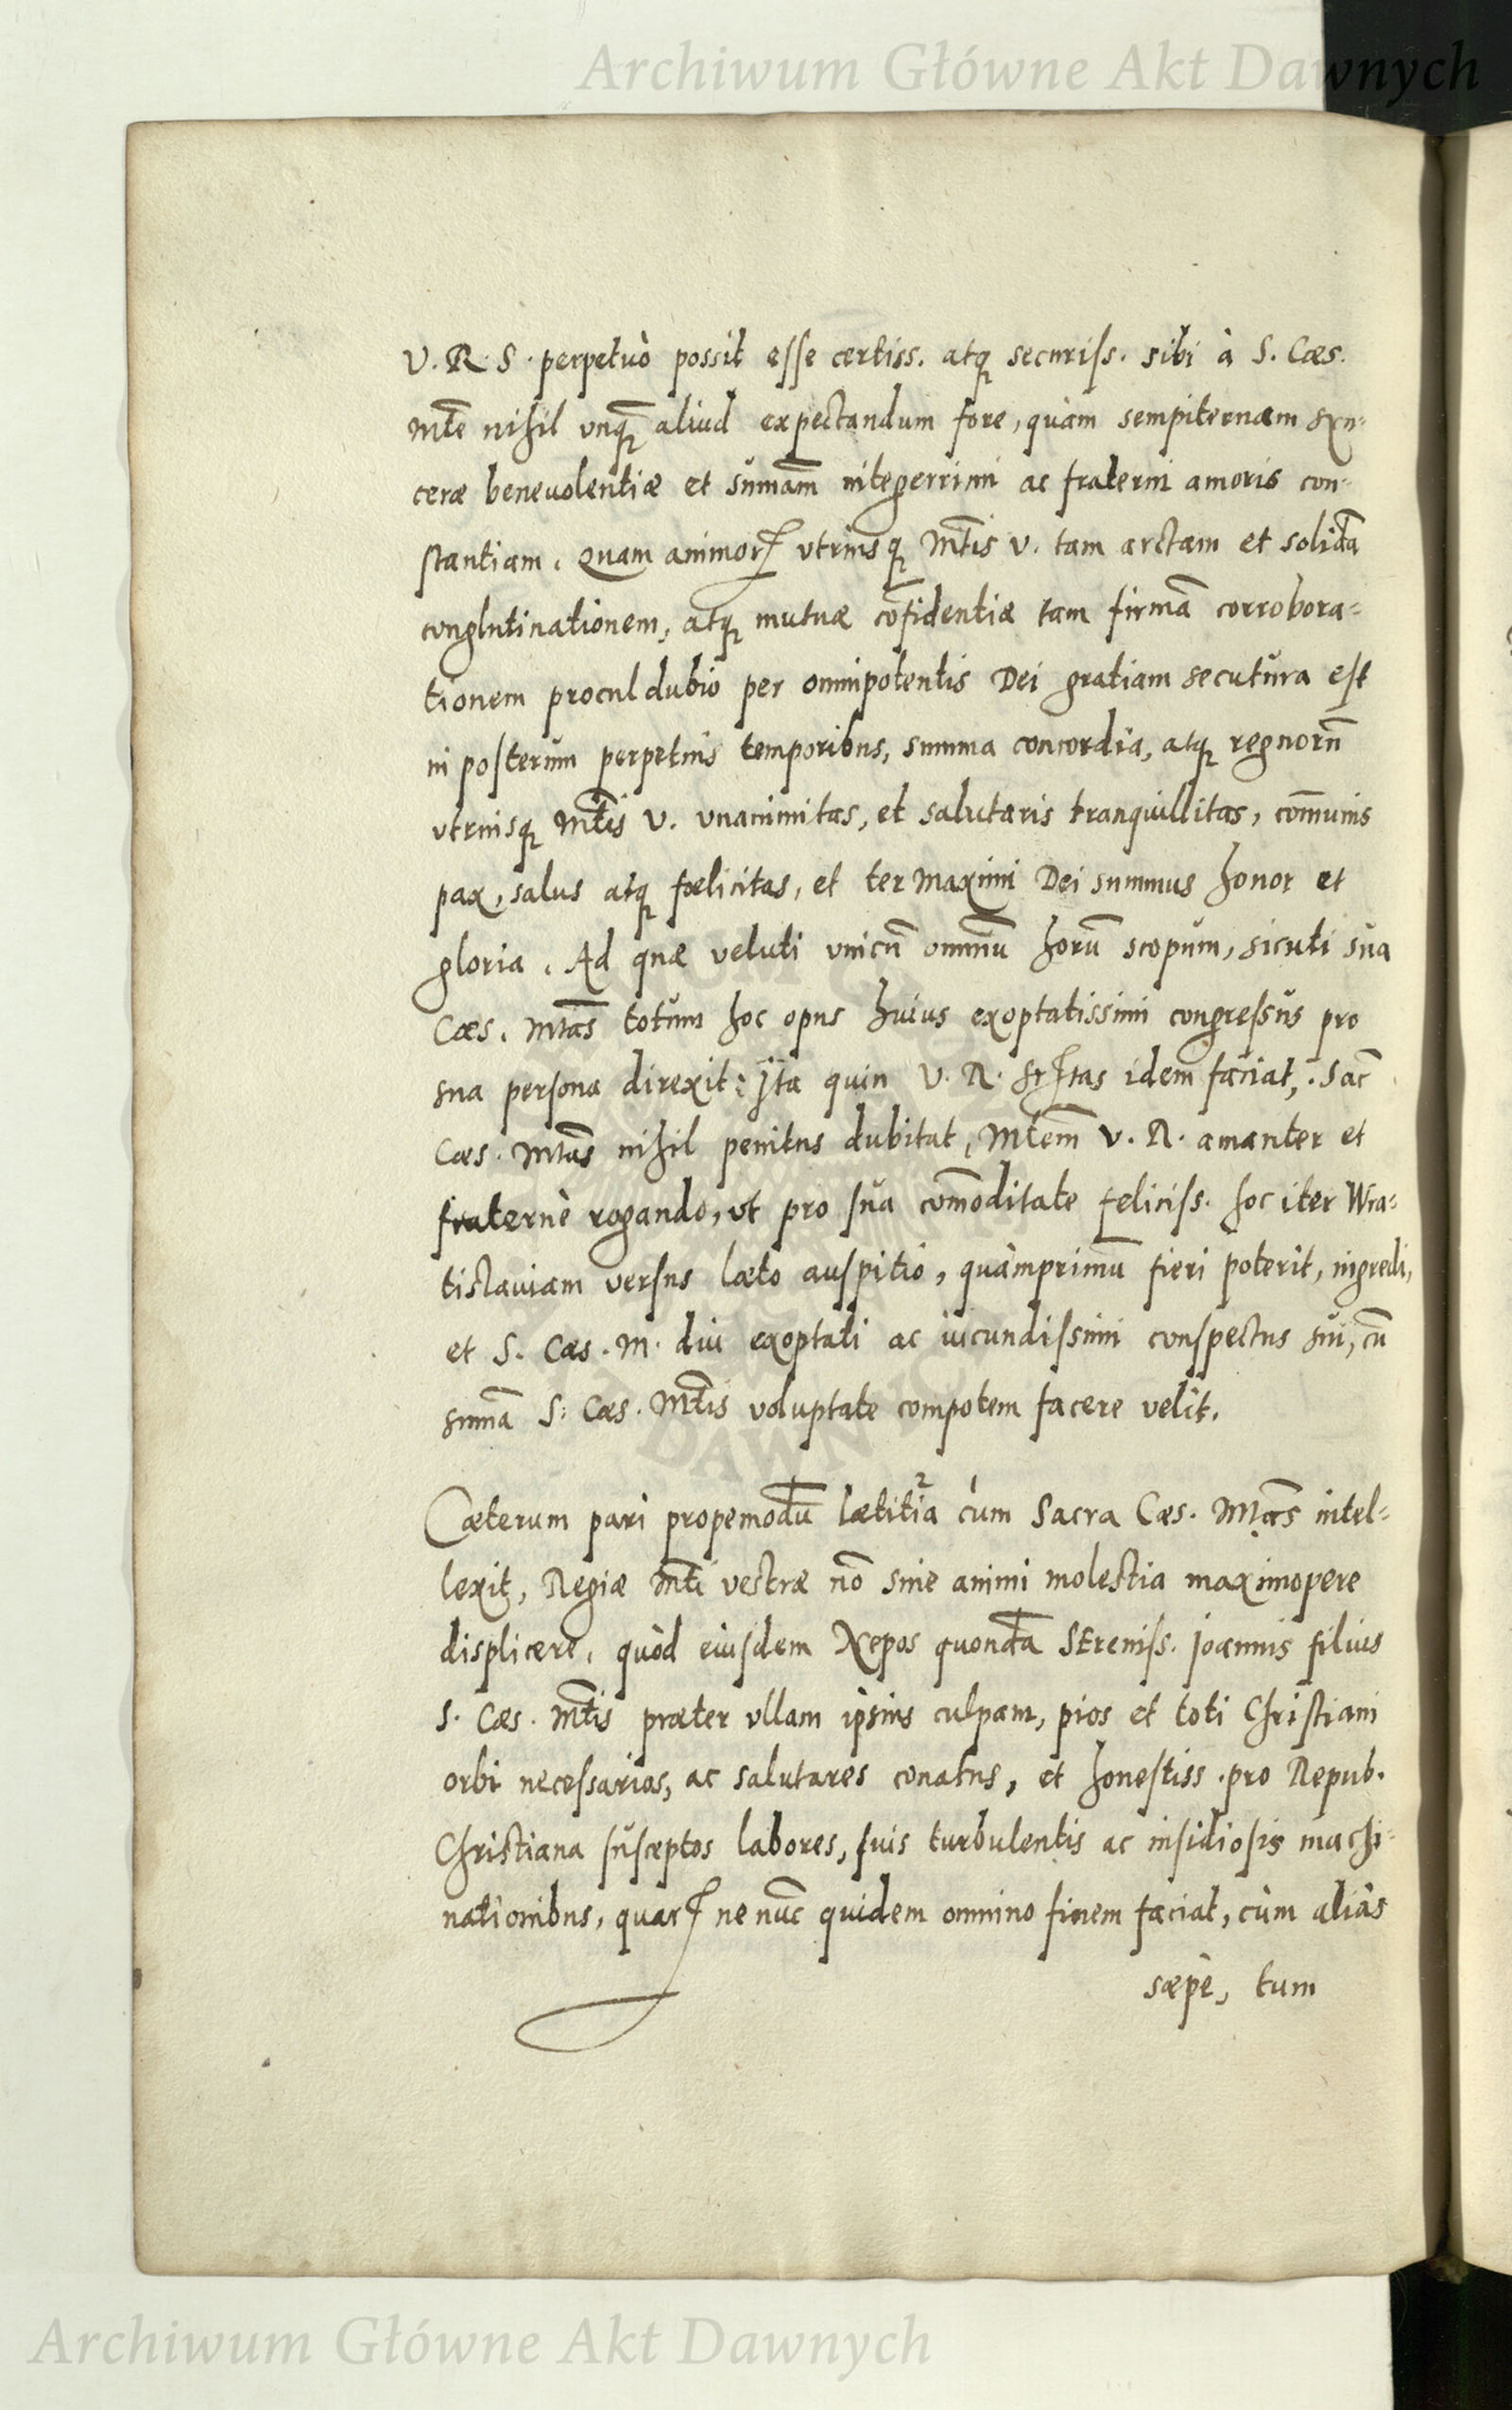 Archiwum Główne Akt Dawnych
V. R. S. perpetuò possit esse certiss. atq securiss. sibi à S. Cæs.
Mte nihil unq̄ aliud expectandum fore, quàm sempiternam syn-
ceræ beneuolentiæ et sum̄am integerrimi ac fraterni amoris con-
stantiam. Quam animorꝝ vtriusq Mtis V. tam arctam et solidā
conglutinationem, atq mutuæ cōfidentiæ tam firmā corrobora-
tionem procul dubio per omnipotentis Dei gratiam secutura est
in posterum perpetuis temporibus, summa concordia, atq regnorū
vtriusq Mtis V. vnanimitas, et salutaris tranquillitas, com̄unis
pax, salus atq fœlicitas, et ter Maximi Dei summus honor et
gloria. Ad quæ veluti vnicū omniū horū scopum, sicuti sua
Cæs. Mtas totum hoc opus huius exoptatissimi congressus pro
sua persona direxit: Ita quin V. R. Srtas idem faciat, Sac
Cæs. Mtas nihil penitus dubitat, Mtem V. R. amanter et
fraternè rogando, vt pro sua com̄oditate feliciss. hoc iter Wra-
tislauiam versus læto auspitio, quàmprimū fieri poterit, ingredi,
et S. Cæs. M. diu exoptati ac iucundissimi conspectus sui, cū
sum̄a S. Cæs. Mtis voluptate compotem facere velit.
Cæterum pari propemodū lætitia cùm Sacra Cæs. Mtas intel-
lexit, Regiæ Mti vestræ nō sine animi molestia maximopere
displicere, quòd eiusdem Nepos quondā Sereniss. Joannis filius
S. Cæs. Mtis præter vllam ipsius culpam, pios et toti Christiani
orbi necessarios, ac salutares conatus, et honestiss. pro Repub.
Christiana susceptos labores, suis turbulentis ac insidiosis machi-
nationibus, quarꝝ ne nūc quidem omnino finem faciat, cùm aliàs
sæpè, tum
Archiwum Główne Akt Dawnych